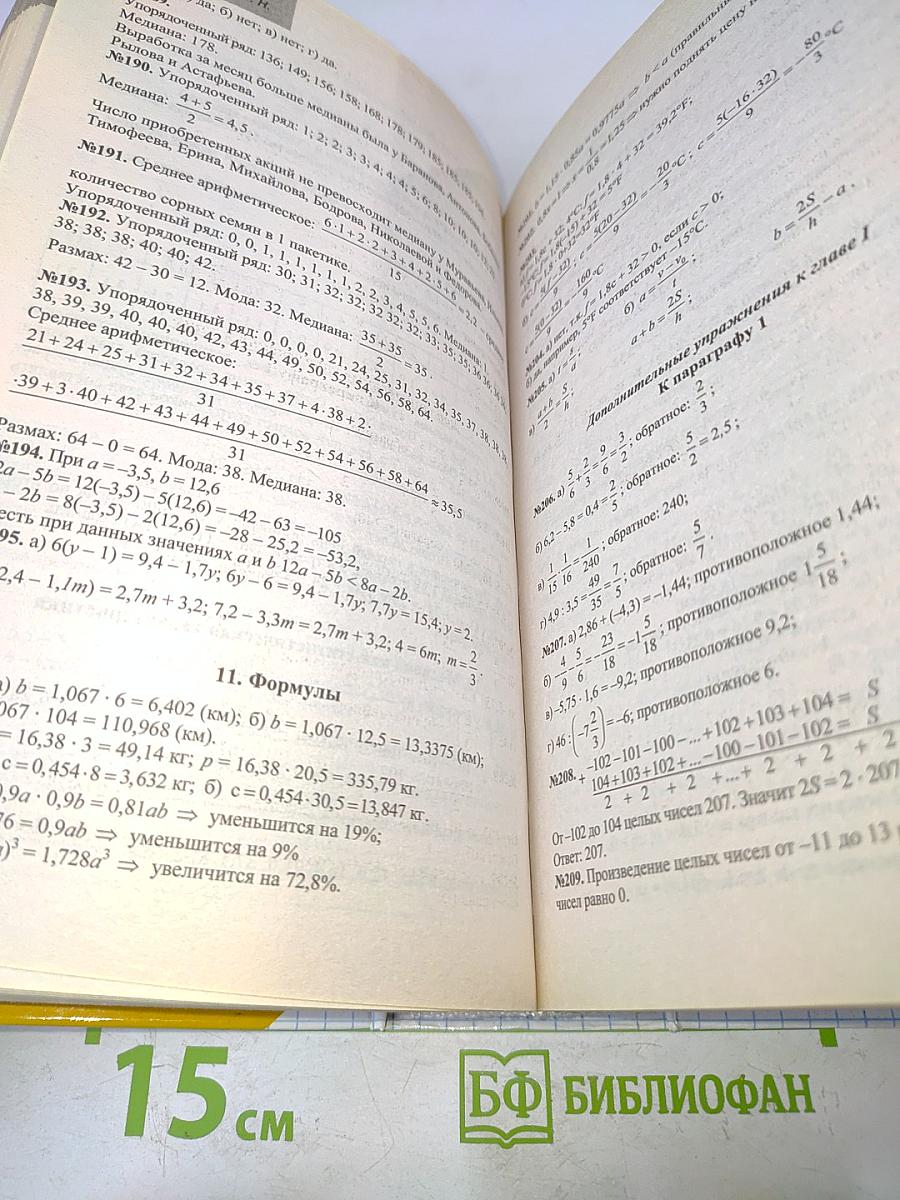 да; б) нет; в) нет; г) да.
Упорядоченный ряд: 136; 149; 156; 158; 168; 178; 179; 185; 185; 185;
Медиана: 178.
Выработка за месяц больше медианы была у Баранова, Антонова,
Рылова и Астафьева.
№190. Упорядоченный ряд: 1; 2; 2; 3; 3; 4; 4; 4; 5; 6; 8; 10; 10;
Медиана: (4+5)/2 = 4,5.
Число приобретенных акций не превосходит медиану у
Тимофеева, Ерина, Михайлова, Бодрова, Николаевой и Федорова
№191. Среднее арифметическое: (6·1+2·2+3+4+2·5+6)/15 = 2,2
количество сорных семян в 1 пакетике.
Упорядоченный ряд: 0, 0, 1, 1, 1, 1, 1, 1, 2, 2, 3, 4, 5, 5, 6. Медиана: 1.
№192. Упорядоченный ряд: 30; 31; 32; 32; 32 32; 32; 33; 35; 35; 36 36;
38; 38; 38; 40; 40; 42.
Размах: 42 – 30 = 12. Мода: 32. Медиана: (35+35)/2 = 35.
№193. Упорядоченный ряд: 0, 0, 0, 0, 21, 24, 25, 31, 32, 34, 35, 37, 38, 38,
38, 39, 39, 40, 40, 40, 42, 43, 44, 49, 50, 52, 54, 56, 58, 64.
Среднее арифметическое:
(21+24+25+31+32+34+35+37+4·38+2·)/31
(·39+3·40+42+43+44+49+50+52+54+56+58+64)/31 ≈ 35,5
Размах: 64 – 0 = 64. Мода: 38. Медиана: 38.
№194. При a = –3,5, b = 12,6
2a – 5b = 12(–3,5) – 5(12,6) = –42 – 63 = –105
– 2b = 8(–3,5) – 2(12,6) = –28 – 25,2 = –53,2,
есть при данных значениях a и b 12a – 5b < 8a – 2b.
95. а) 6(y – 1) = 9,4 – 1,7y; 6y – 6 = 9,4 – 1,7y; 7,7y = 15,4; y = 2.
2,4 – 1,1m) = 2,7m + 3,2; 7,2 – 3,3m = 2,7m + 3,2; 4 = 6m; m = 2/3.
11. Формулы
а) b = 1,067 · 6 = 6,402 (км); б) b = 1,067 · 12,5 = 13,3375 (км);
067 · 104 = 110,968 (км).
= 16,38 · 3 = 49,14 кг; p = 16,38 · 20,5 = 335,79 кг.
c = 0,454 · 8 = 3,632 кг; б) c = 0,454 · 30,5 = 13,847 кг.
0,9a · 0,9b = 0,81ab ⇒ уменьшится на 19%;
76 = 0,9ab ⇒ уменьшится на 9%
)³ = 1,728a³ ⇒ увеличится на 72,8%.
0,85a = 0,9775a ⇒ b < a (правильно
= 1,25 ⇒ нужно поднять цену
№204. а) нет, т.к. f = 1,8c + 32 > 0, если c > 0;
б) да, например, 5°F соответствует –15°C.
№205. а) t = s/a; б) a = (v – v₀)/t;
в) (a+b)/2 = S/h; a + b = 2S/h; b = 2S/h – a.
Дополнительные упражнения к главе I
К параграфу 1
№206. а) 5/6 + 2/3 = 9/6 = 3/2; обратное: 2/3;
б) 6,2 – 5,8 = 0,4 = 2/5; обратное: 5/2 = 2,5;
в) 1/15 · 1/16 = 1/240; обратное: 240;
г) 4,9 : 3,5 = 49/35 = 7/5; обратное: 5/7.
№207. а) 2,86 + (–4,3) = –1,44; противоположное 1,44;
б) –4/9 – 5/6 = –23/18 = –1 5/18; противоположное 1 5/18;
в) –5,75 · 1,6 = –9,2; противоположное 9,2;
г) 46 : (–7 2/3) = –6; противоположное 6.
№208. + –102–101–100–...+102+103+104= S
104+103+102+...–100–101–102= S
2 + 2 + 2 +...+ 2 + 2 + 2 + 2
От –102 до 104 целых чисел 207. Значит 2S = 2 · 207
Ответ: 207.
№209. Произведение целых чисел от –11 до 13
чисел равно 0.
15 см
БФ БИБЛИОФАН